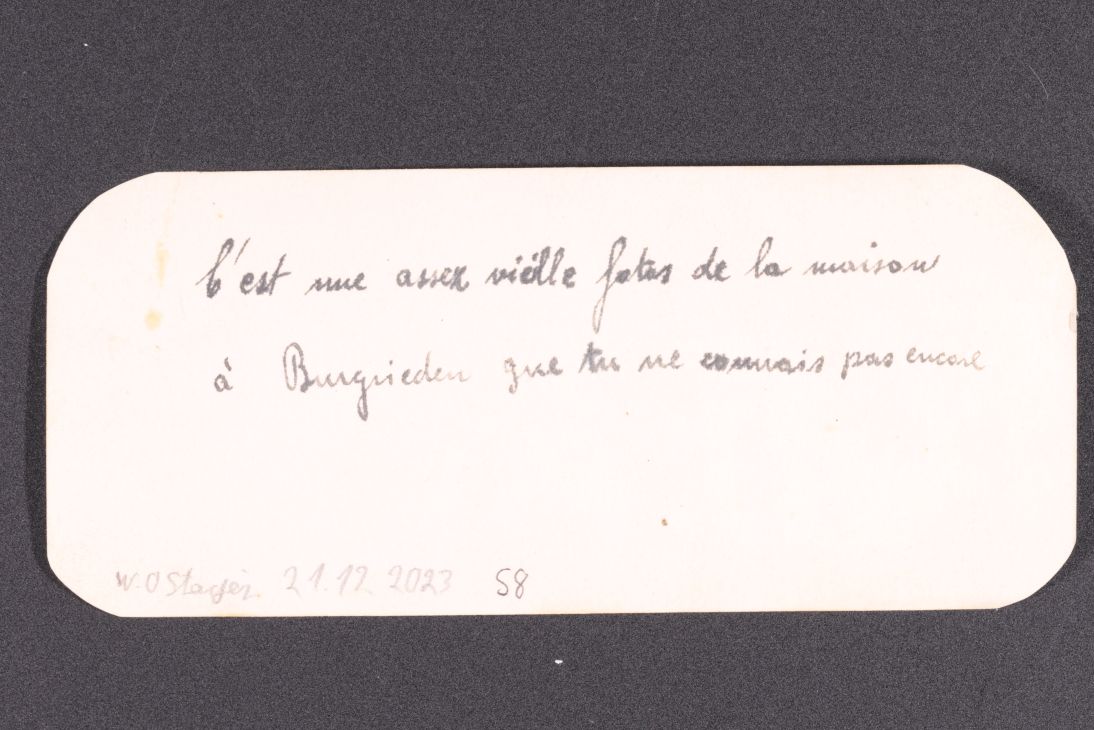 C'est une assez viëlle fotos de la maison
à Burgrieden que tu ne connais pas encore
21.12.2023 S8